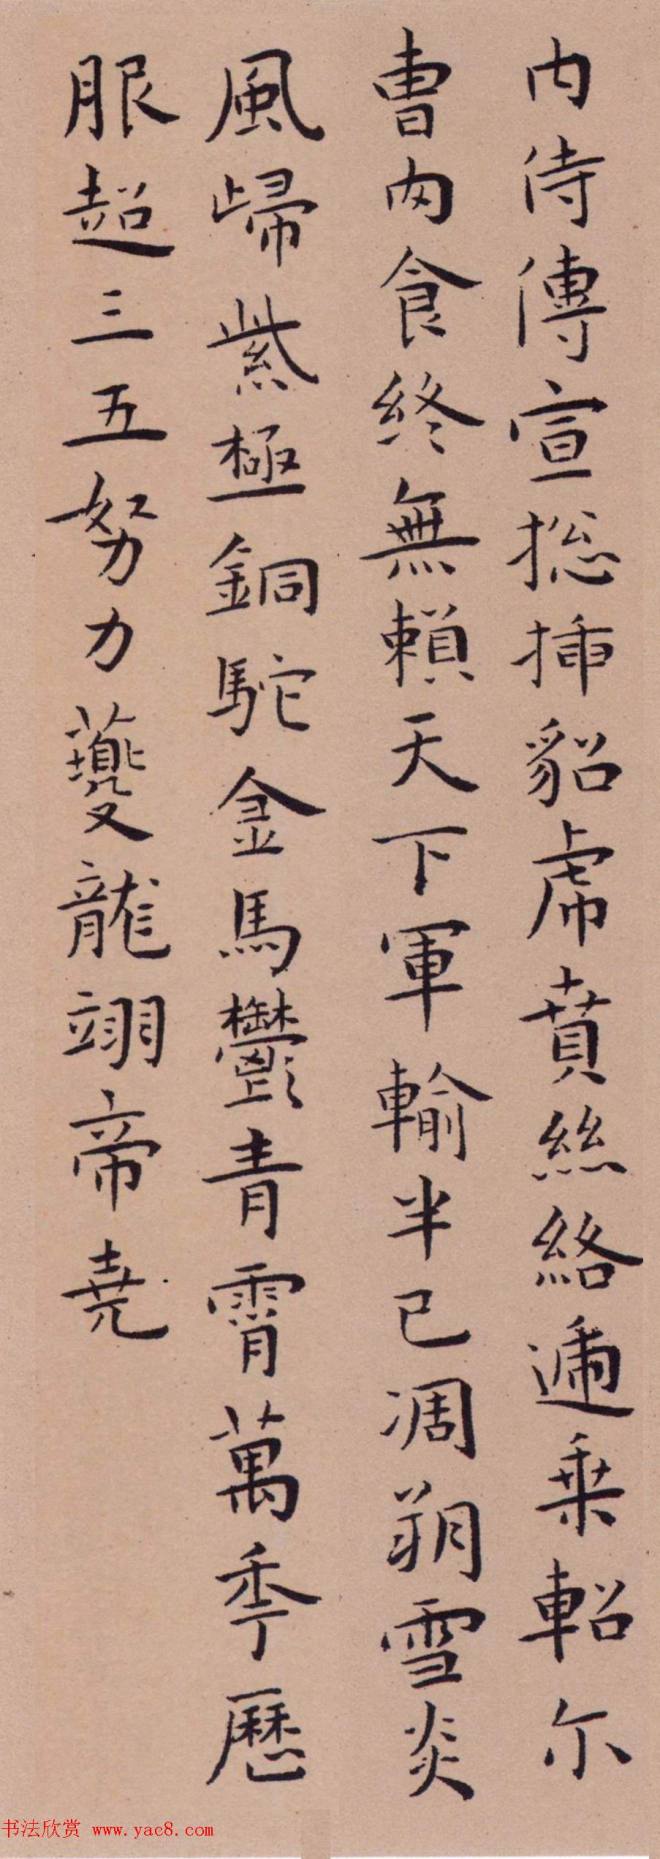 内侍傳宣揔揷貂虎賁絲絡遞乗軺尓
曹肉食終無賴天下軍輸半已凋朔雪炎
風歸紫極銅駝金馬鬱青霄萬秊歷
服超三五努力夔龍翊帝堯
书法欣赏 www.yac8.com